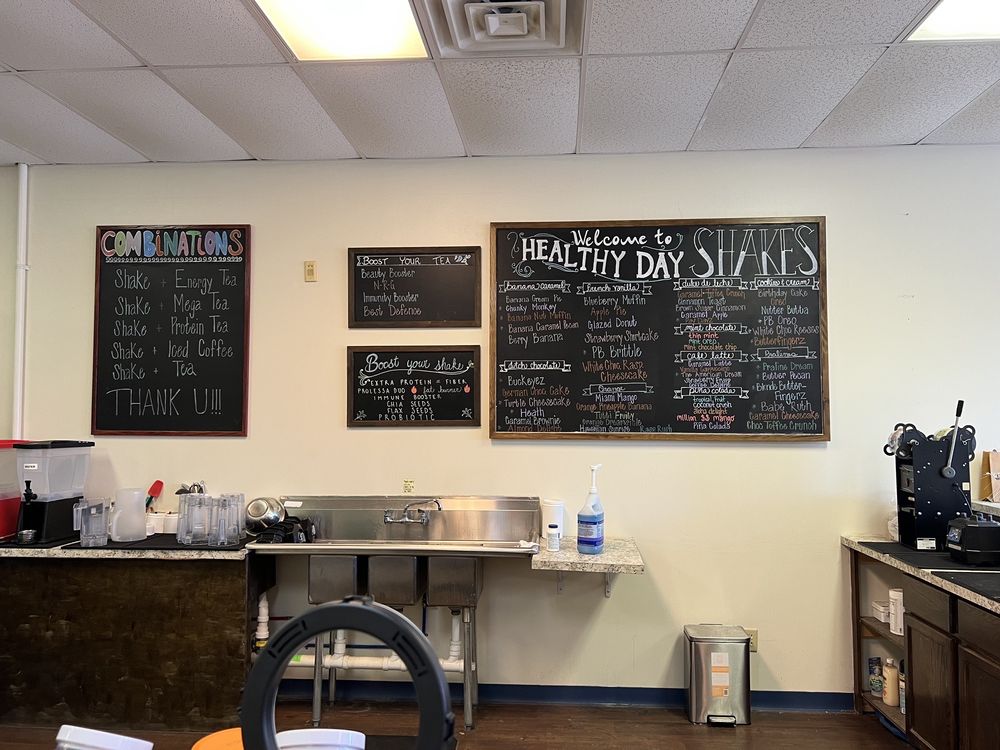 COMBINATIONS
Shake + Energy Tea
Shake + Mega Tea
Shake + Protein Tea
Shake + Iced Coffee
Shake + Tea
THANK U!!!
BOOST YOUR TEA
Beauty Booster
N-R-G
Immunity Booster
Best Defence
Boost your shake
EXTRA PROTEIN = FIBER
PROLESSA DUO
IMMUNE BOOSTER
CHIA SEEDS
FLAX SEEDS
PROBIOTIC
Welcome to
HEALTHY DAY SHAKES
Banana Caramel
Banana Cream Pie
Chunky Monkey
Banana Nut Muffin
Banana Caramel Bean
Berry Banana
dutch chocolate
Buckeyez
German Choc Cake
Turtle Cheesecake
Heath
Caramel Brownie
Almond Delight
french vanilla
Blueberry Muffin
Apple Pie
Glazed Donut
Strawberry Shortcake
PB Brittle
White Choc Rasp
Cheesecake
Orange
Miami Mango
Orange Pineapple Banana
Tutti Fruity
Orange Dreamsicle
Hawaiian Sunrise
dulce de leche
Caramel Toffee Crunch
Cinnamon Toast
Brown Sugar Cinnamon
Caramel Apple
mint chocolate
thin mint
mint oreo
mint chocolate chip
cafe latte
Caramel Latte
The American Dream
Strawberry Fruity
piña colada
tropical fruit
Coconut crush
aloha delight
million $$ mango
Piña Colada
cookies & cream
Birthday Cake
Oreo
Nutter Butta
PB Oreo
White Choc Reeses
Butterfingerz
Pralines
Praline Dream
Butter Pecan
Blonde Butter-
Fingerz
Babe Ruth
Caramel Cheesecake
Choc Toffee Crunch